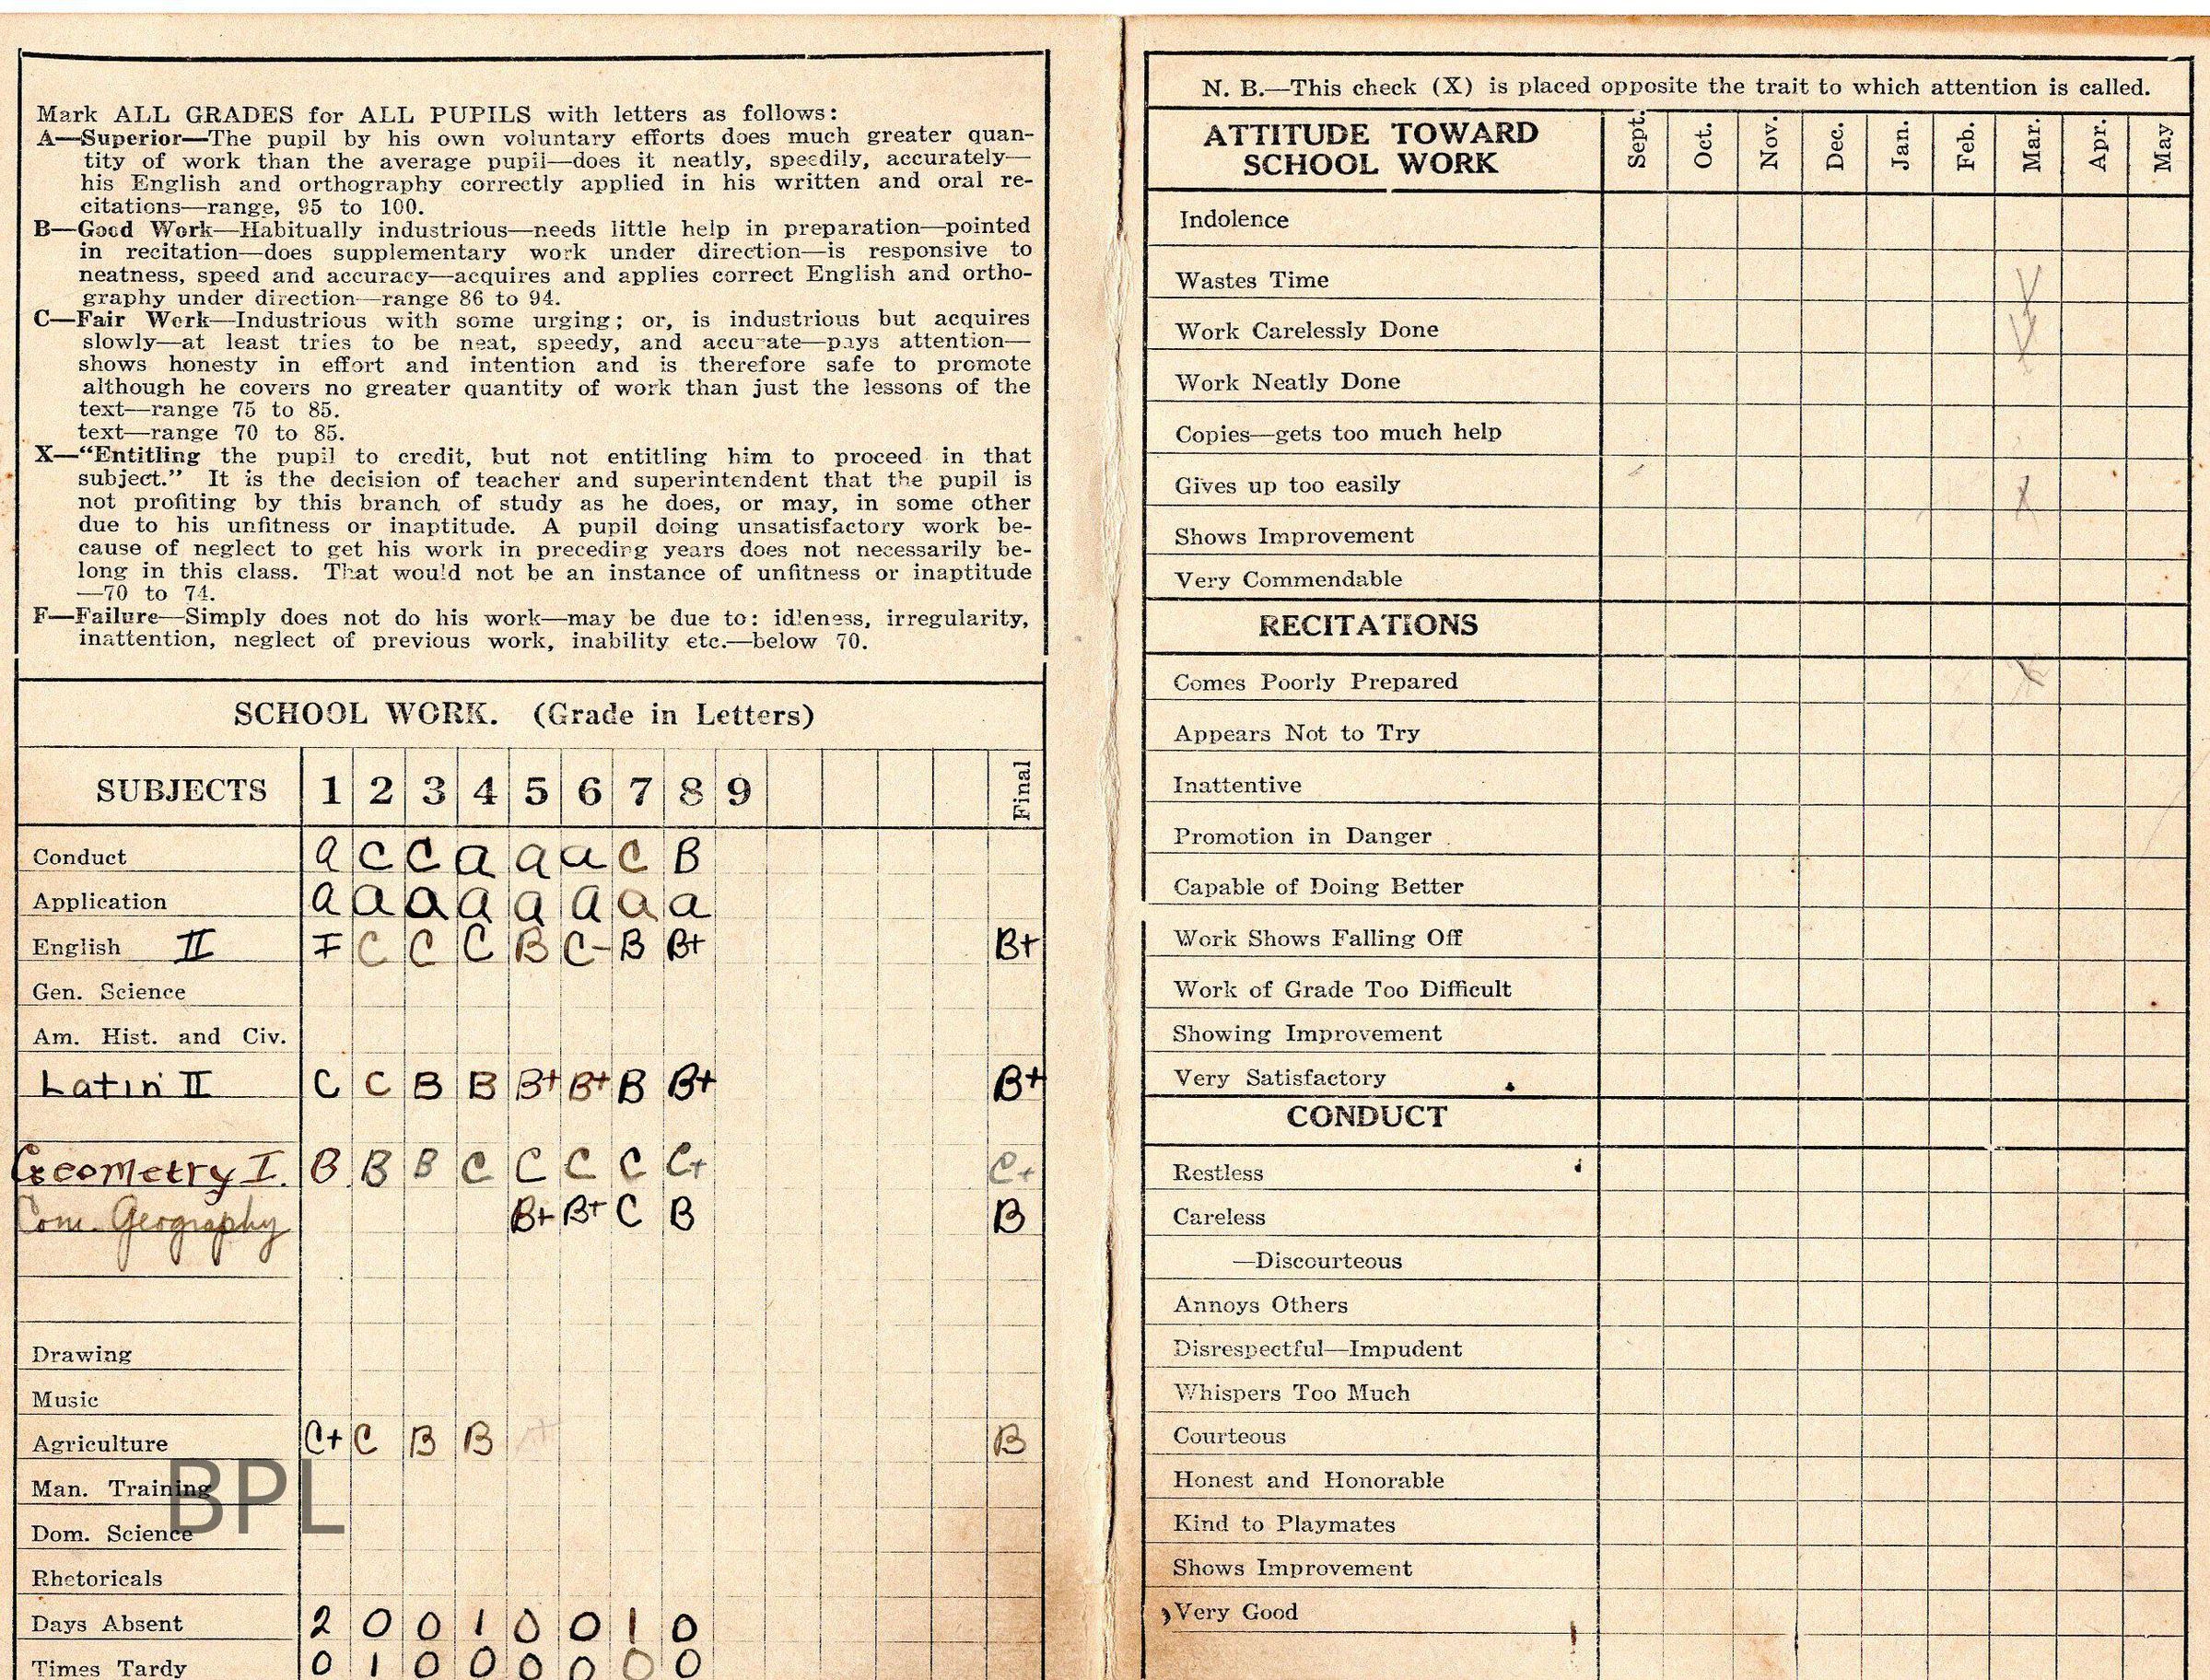 Mark ALL GRADES for ALL PUPILS with letters as follows:
A—Superior—The pupil by his own voluntary efforts does much greater quan-
tity of work than the average pupil—does it neatly, speedily, accurately—
his English and orthography correctly applied in his written and oral re-
citations—range, 95 to 100.
B—Good Work—Habitually industrious—needs little help in preparation—pointed
in recitation—does supplementary work under direction—is responsive to
neatness, speed and accuracy—acquires and applies correct English and ortho-
graphy under direction—range 86 to 94.
C—Fair Work—Industrious with some urging; or, is industrious but acquires
slowly—at least tries to be neat, speedy, and accurate—pays attention—
shows honesty in effort and intention and is therefore safe to promote
although he covers no greater quantity of work than just the lessons of the
text—range 75 to 85.
text—range 70 to 85.
X—“Entitling the pupil to credit, but not entitling him to proceed in that
subject.” It is the decision of teacher and superintendent that the pupil is
not profiting by this branch of study as he does, or may, in some other
due to his unfitness or inaptitude. A pupil doing unsatisfactory work be-
cause of neglect to get his work in preceding years does not necessarily be-
long in this class. That would not be an instance of unfitness or inaptitude
—70 to 74.
F—Failure—Simply does not do his work—may be due to: idleness, irregularity,
inattention, neglect of previous work, inability etc.—below 70.
SCHOOL WORK. (Grade in Letters)
SUBJECTS 1 2 3 4 5 6 7 8 9 Final
Conduct a C C a a a C B
Application a a a a a a a a
English II F C C C B C- B B+ B+
Gen. Science
Am. Hist. and Civ.
Latin II C C B B B+ B+ B B+ B+
Geometry I. B B B C C C C C+ C+
Com. Geography B+ B+ C B B
Drawing
Music
Agriculture C+ C B B B
Man. Training
BPL
Dom. Science
Rhetoricals
Days Absent 2 0 0 1 0 0 1 0
Times Tardy 0 1 0 0 0 0 0 0
N. B.—This check (X) is placed opposite the trait to which attention is called.
ATTITUDE TOWARD
SCHOOL WORK
Sept. Oct. Nov. Dec. Jan. Feb. Mar. Apr. May
Indolence
Wastes Time X
Work Carelessly Done X
Work Neatly Done
Copies—gets too much help
Gives up too easily X
Shows Improvement
Very Commendable
RECITATIONS
Comes Poorly Prepared X
Appears Not to Try
Inattentive
Promotion in Danger
Capable of Doing Better
Work Shows Falling Off
Work of Grade Too Difficult
Showing Improvement
Very Satisfactory
CONDUCT
Restless
Careless
—Discourteous
Annoys Others
Disrespectful—Impudent
Whispers Too Much
Courteous
Honest and Honorable
Kind to Playmates
Shows Improvement
Very Good